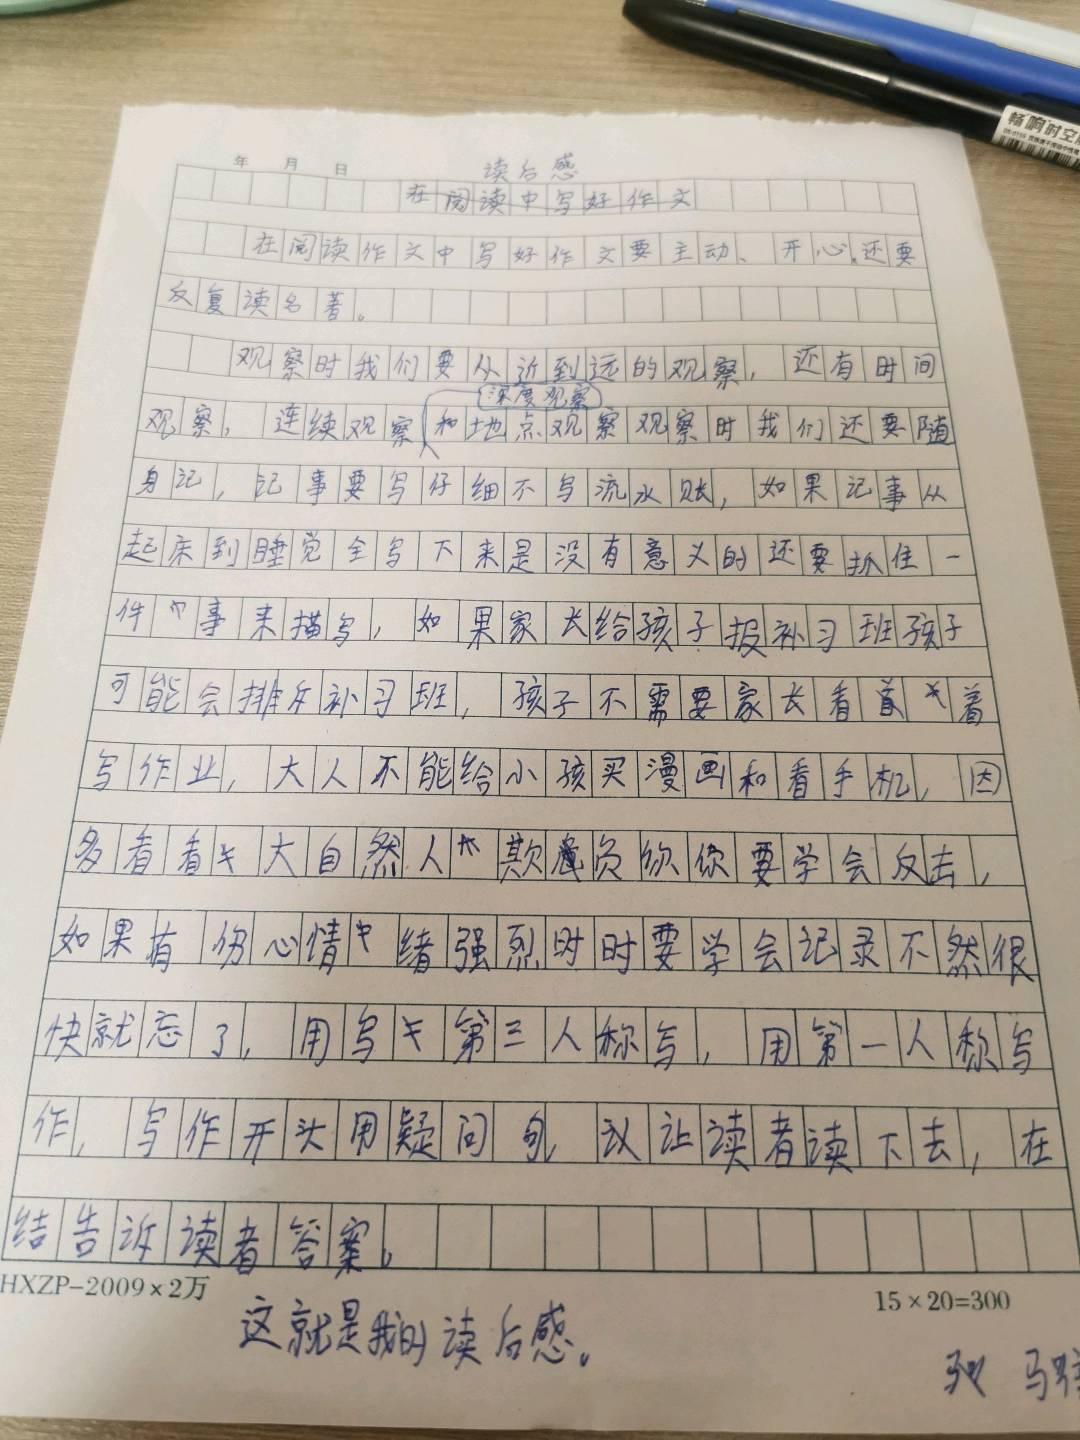 畅响时空
年 月 日
读后感
在阅读中写好作文
在阅读作文中写好作文要主动、开心.还要
反复读名著。
观察时我们要从近到远的观察，还有时间
深度观察
观察，连续观察和地点观察观察时我们还要随
身记，记事要写仔细不写流水账，如果记事从
起床到睡觉全写下来是没有意义的还要抓住一
件 事来描写，如果家长给孩子报补习班孩子
可能会排斥补习班，孩子不需要家长看 着
写作业，大人不能给小孩买漫画和看手机，因
多看看 大自然人 欺 负 你要学会反击，
如果有 伤心情 绪强烈时时要学会记录不然很
快就忘了，用写 第三人称写，用第一人称写
作，写作开头用疑问句， 让读者读下去，在
结告诉读者答案。
HXZP-2009×2万
15×20=300
这就是我的读后感。